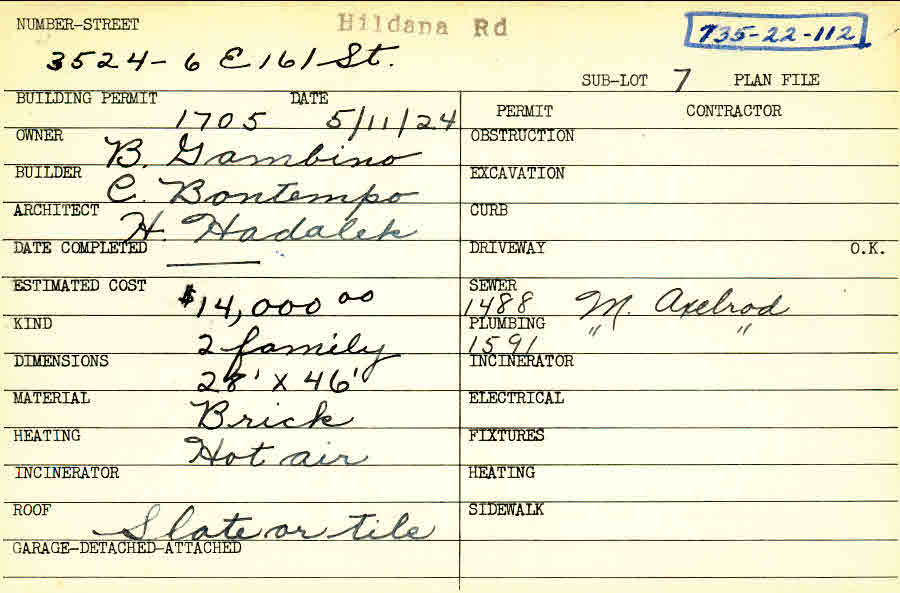 NUMBER-STREET Hildana Rd 735-22-112
3524-6 E 161 St.
SUB-LOT 7 PLAN FILE
BUILDING PERMIT DATE
1705 5/11/24
PERMIT CONTRACTOR
OWNER B. Gambino
OBSTRUCTION
BUILDER C. Bontempo
EXCAVATION
ARCHITECT H. Hadalek
CURB
DATE COMPLETED ——
DRIVEWAY O.K.
ESTIMATED COST $14,000 00
SEWER
1488 M. Axelrod
KIND 2 family
PLUMBING " "
1591
DIMENSIONS 28' x 46'
INCINERATOR
MATERIAL Brick
ELECTRICAL
HEATING Hot air
FIXTURES
INCINERATOR
HEATING
ROOF Slate or tile
SIDEWALK
GARAGE-DETACHED-ATTACHED